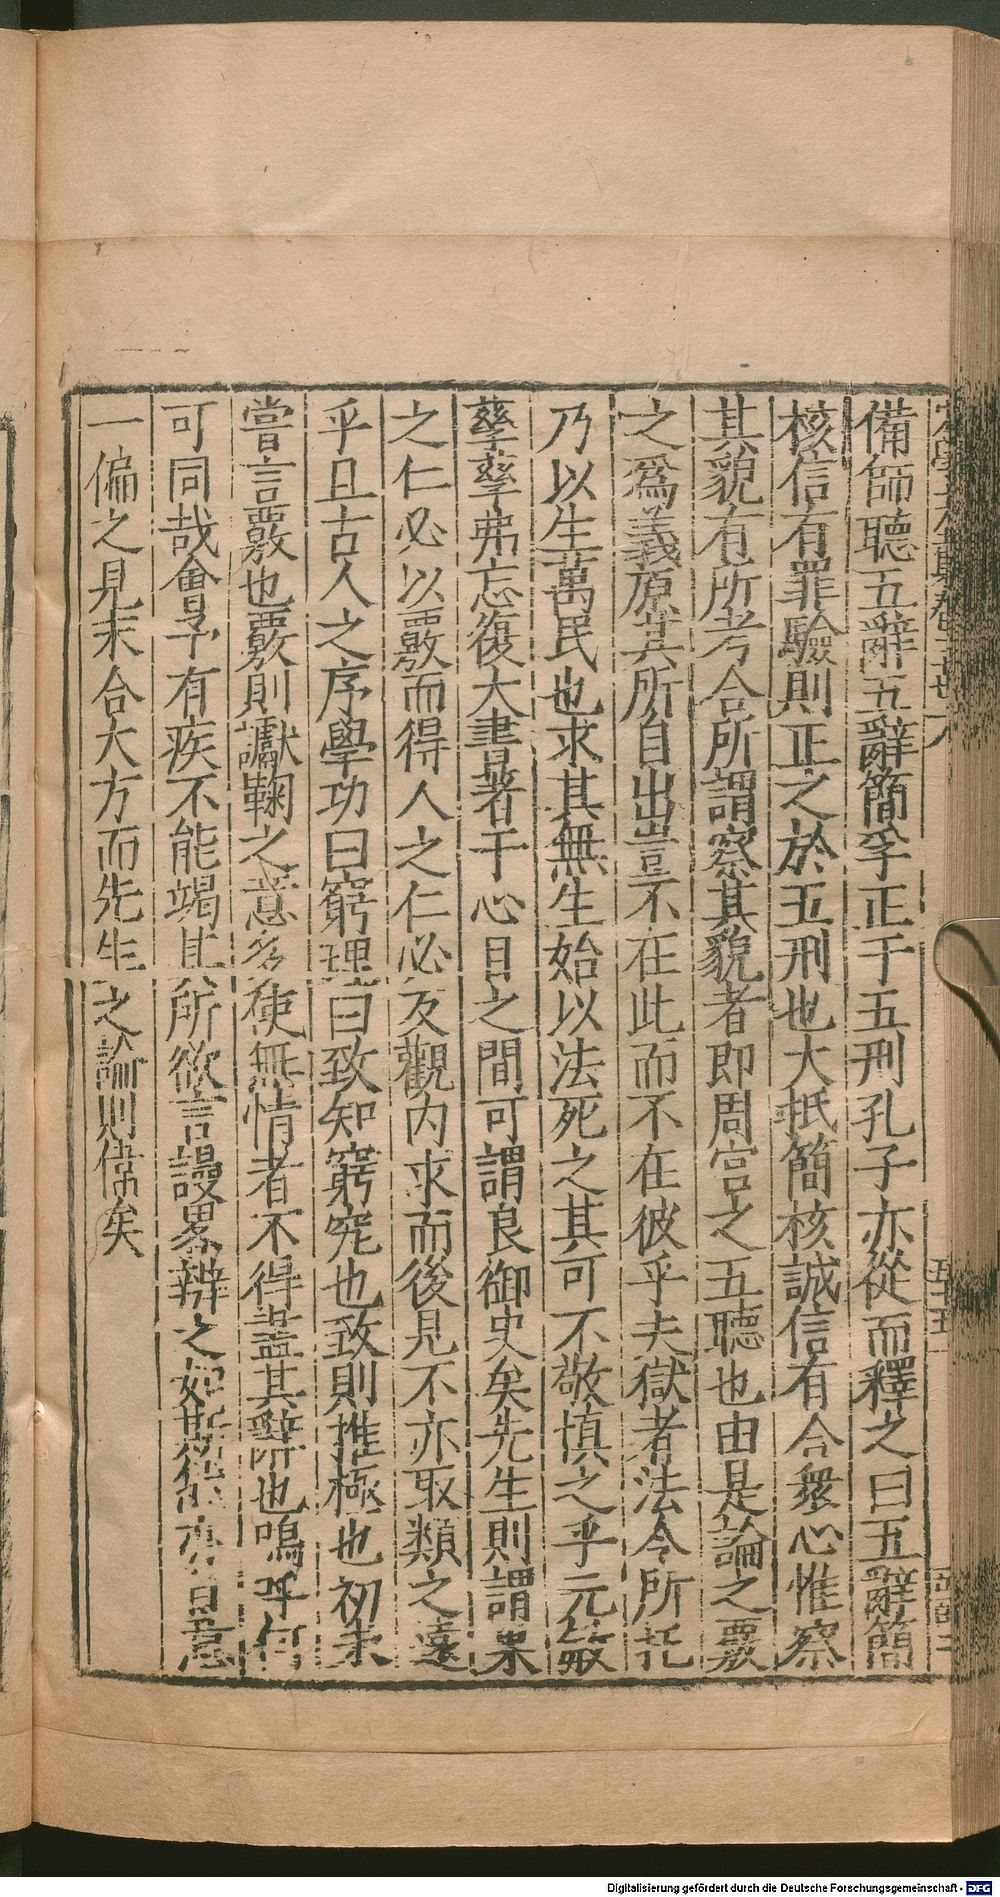 備師聽五辭五辭簡孚正于五刑孔子亦從而釋之曰五辭簡
核信有罪驗則正之於五刑也大抵簡核誠信有合衆心惟察
其貌有所考合所謂察其貌者即周官之五聽也由是論之覈
之爲義原其所自出豈不在此而不在彼乎夫獄者法令所托
乃以生萬民也求其無生始以法死之其可不敬慎之乎元敏
孳孳弗忘復大書著于心目之間可謂良御史矣先生則謂果
之仁必以覈而得人之仁必反觀内求而後見不亦取類之遠
乎且古人之序學功曰窮理曰致知窮究也致則推極也初未
嘗言覈也覈則讞鞫之意多使無情者不得盡其辭也嗚乎何
可同哉會予有疾不能竭其所欲言謾畧辨之如斯意
一偏之見未合大方而先生之論則偉矣
Digitalisierung gefördert durch die Deutsche Forschungsgemeinschaft - DFG